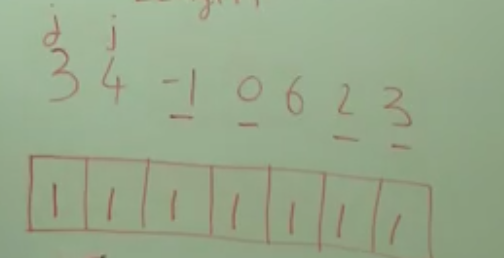 j j
3 4 -1 0 6 2 3
1 1 1 1 1 1 1